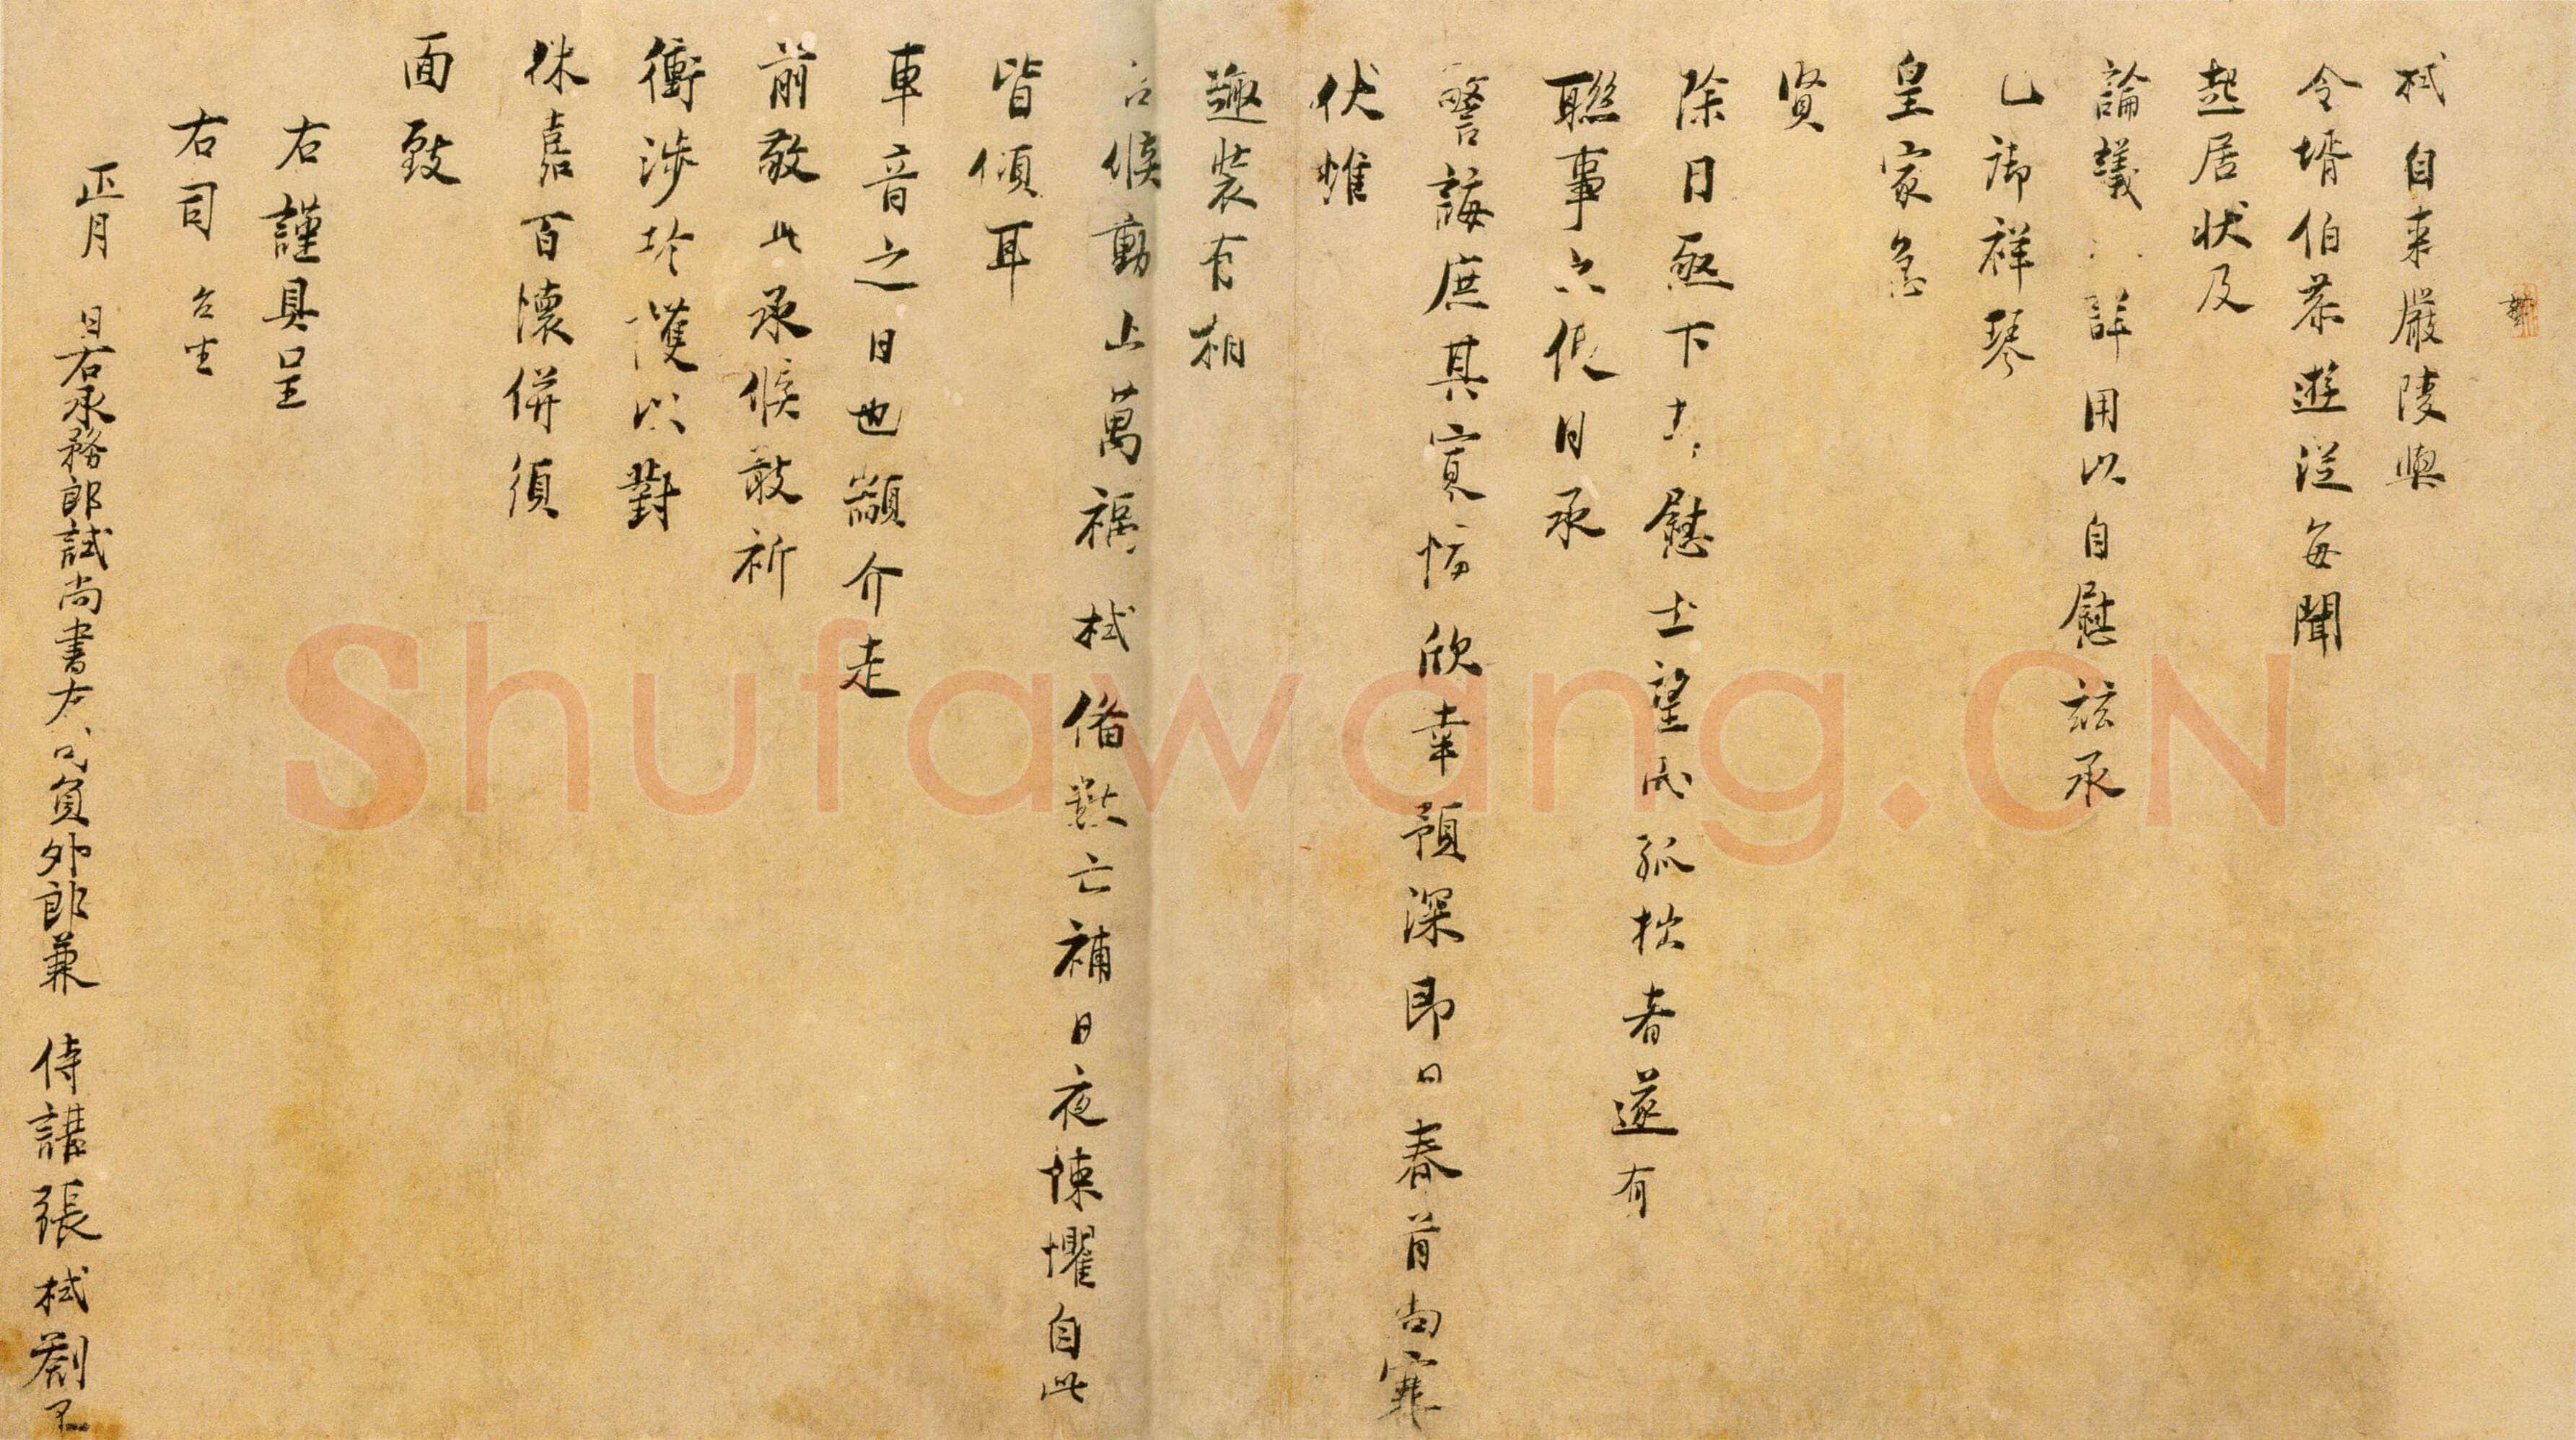 栻自來嚴陵與
令壻伯恭遊從每聞
起居狀及
論議詳用以自慰茲承
已御祥琴
皇家急
賢
除日亟下慰士望民孤拙者遂有
聯事之便日承
警誨庶其寡悔欣幸預深即日春首尚寒
伏惟
趣裝有相
台候動止萬福栻備數亡補日夜悚懼自此
皆傾耳
車音之日也顓介走
前敬此承候敢祈
衝涉珍護以對
休嘉百懷併須
面致
右謹具呈
右司 台坐
正月 日右承務郎試尚書左司員外郎兼 侍講張栻劄子
Shufawang.CN